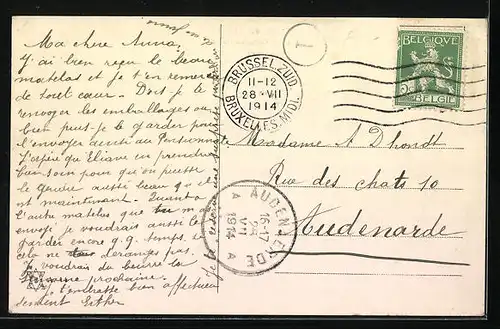 Ma chère Anna,
J'ai bien reçu le beau
matelas et je t'en remercie
de tout cœur. Dois-je te
renvoyer les emballages ou
bien puis-je le garder pour
l'envoyer ainsi au
J'espère qu'Eliane en prendra
bien soin pour qu'on puisse
le garder aussi beau qu'il
est maintenant. Quant à
l'autre matelas que tu m'as
envoyé je voudrais aussi le
garder encore q.q. temps, si
cela ne te déranges pas.
Je voudrais du beurre la
semaine prochaine.
Je t'embrasse bien affectueu-
sement Esther
1
BRUSSEL-ZUID.
11-12
28 VII
1914
BRUXELLES-MIDI.
BELGIQUE
5c
BELGIË
Madame A Dhondt
Rue des chats 10
Audenarde
AUDENAERDE
16-17
VII
1914
A A